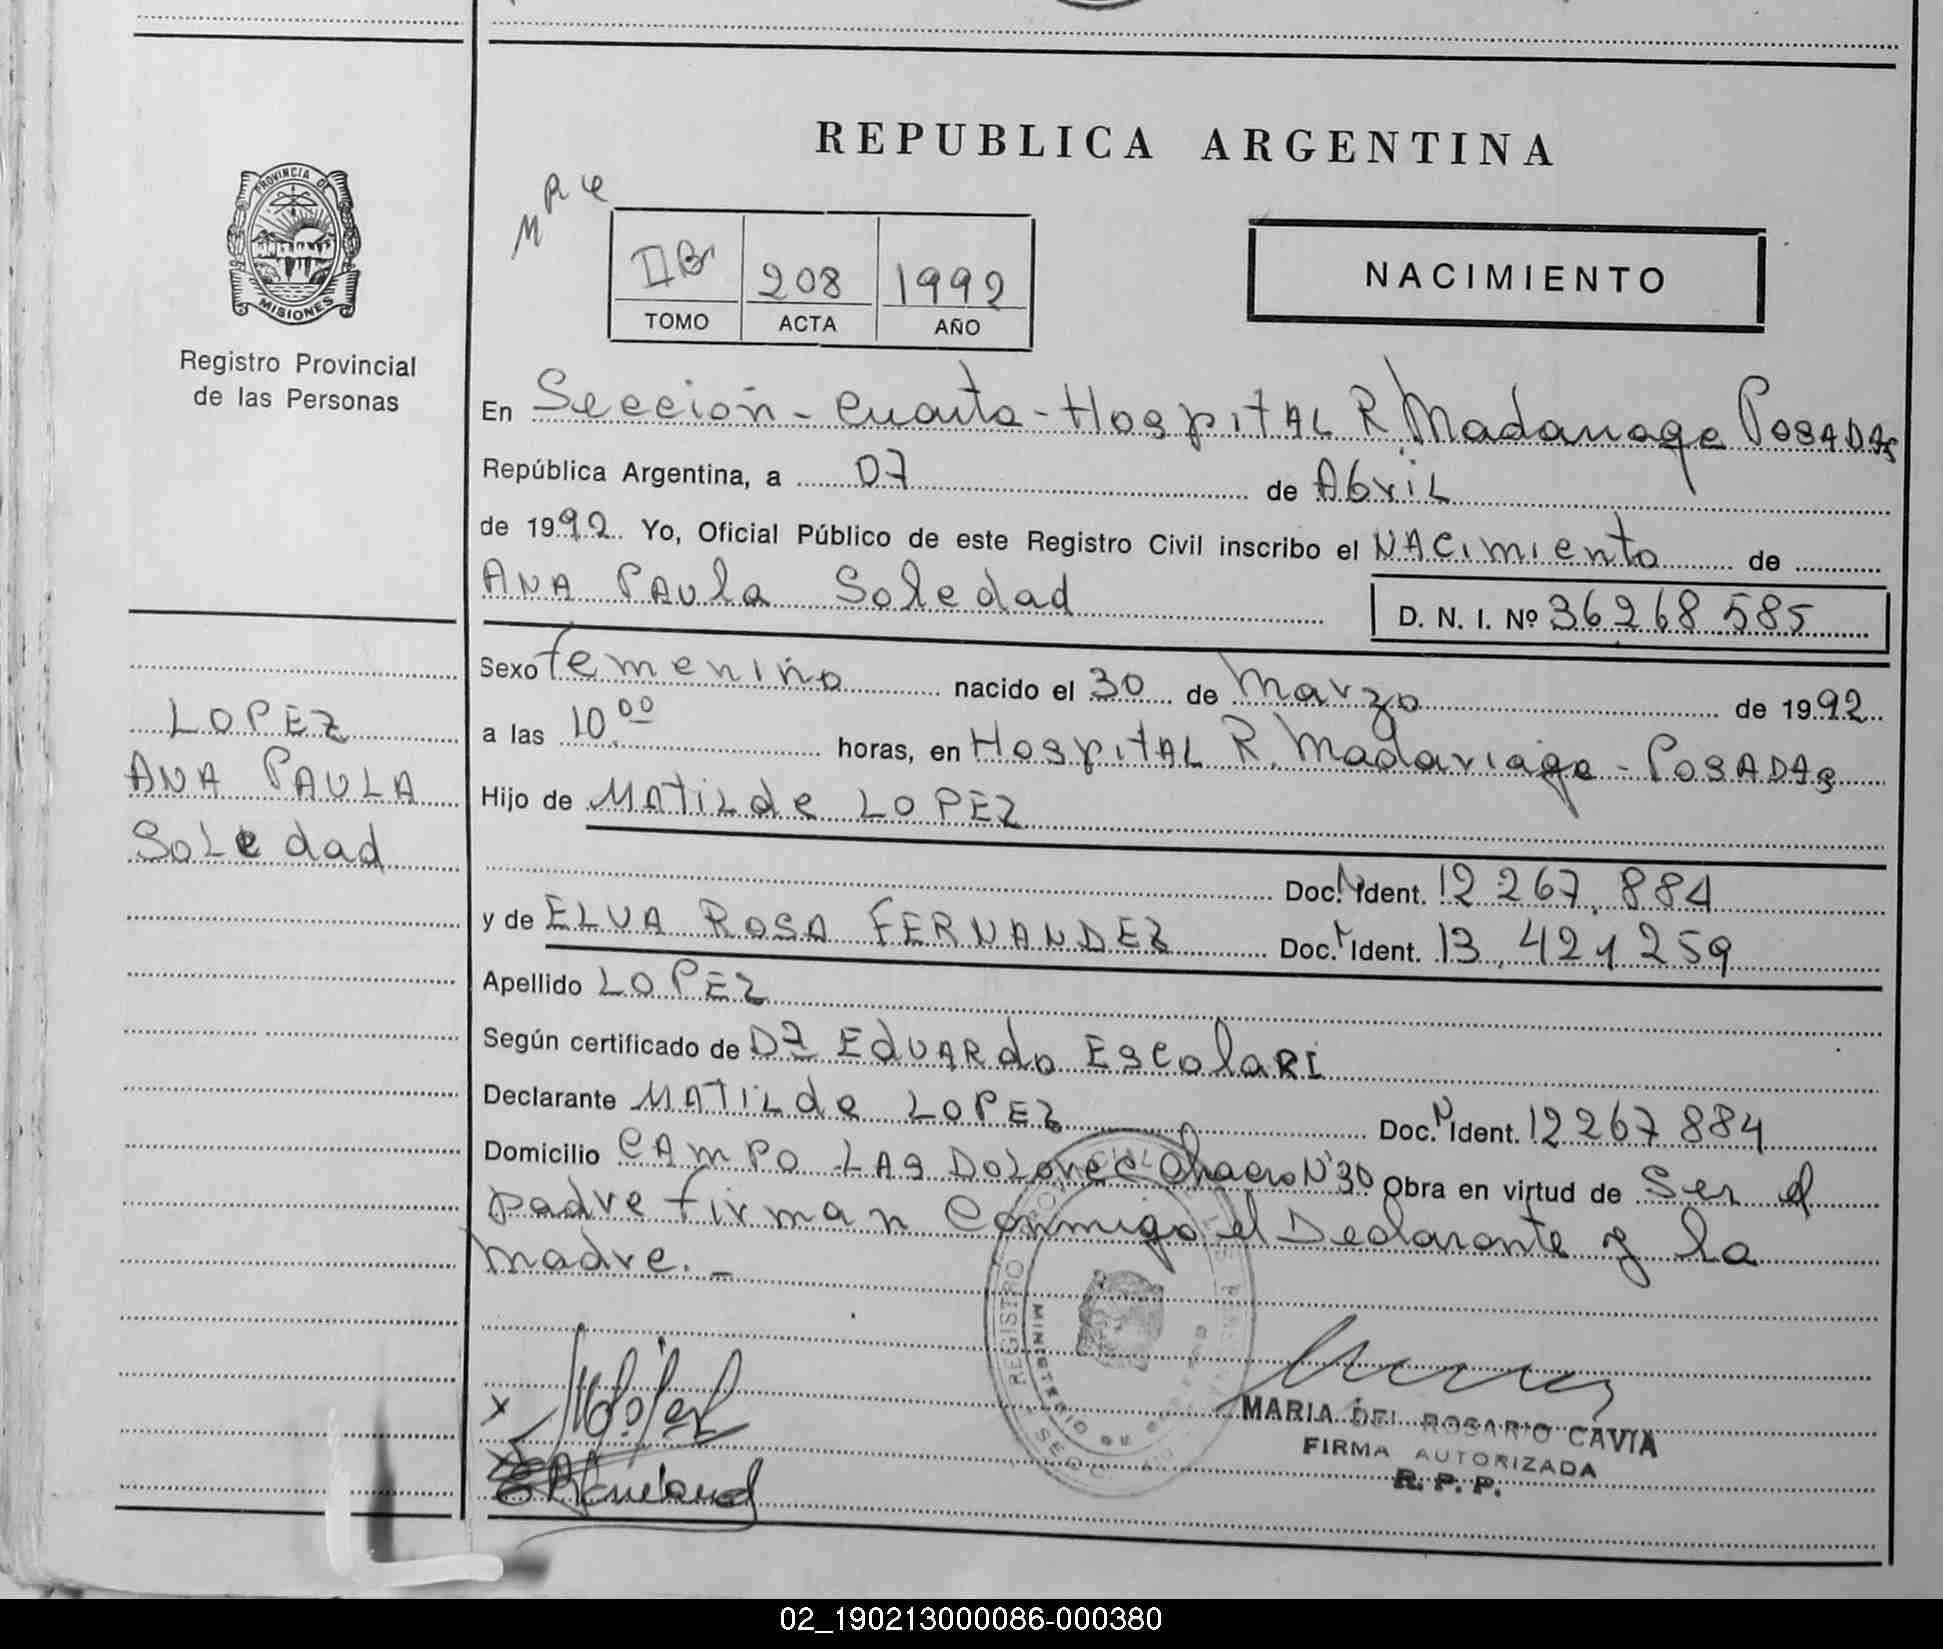 REPUBLICA ARGENTINA
PROVINCIA DE
MISIONES
Registro Provincial
de las Personas
208 1992
TOMO ACTA AÑO
NACIMIENTO
En Sección - Cuarta - Hospital R Madariaga Posadas
República Argentina, a 07 de Abril
de 1992. Yo, Oficial Público de este Registro Civil inscribo el NACimiento de
ANA PAula Soledad
D. N. I. Nº 36268585
Sexo femenino nacido el 30 de Marzo de 1992
a las 10.00 horas, en Hospital R. Madariaga - Posadas
Hijo de Matilde LOPEZ
Doc. N Ident. 12 267.884
y de ELVA ROSA FERNANDEZ Doc. N Ident. 13.421259
Apellido LOPEZ
Según certificado de Dr EDUARdo EscolaRI
Declarante MATILde LOPEZ Doc. N Ident. 12267884
Domicilio CAMPO LAS DOLores Chacra N°30 Obra en virtud de Ser el
padre firman Conmigo el Declarante y la
madre. -
LOPEZ
ANA PAULA
SoLedad
REGISTRO PROVINCIAL
MINISTERIO DE
MARIA DEL ROSARIO CAVIA
FIRMA AUTORIZADA
R. P. P.
02_190213000086-000380